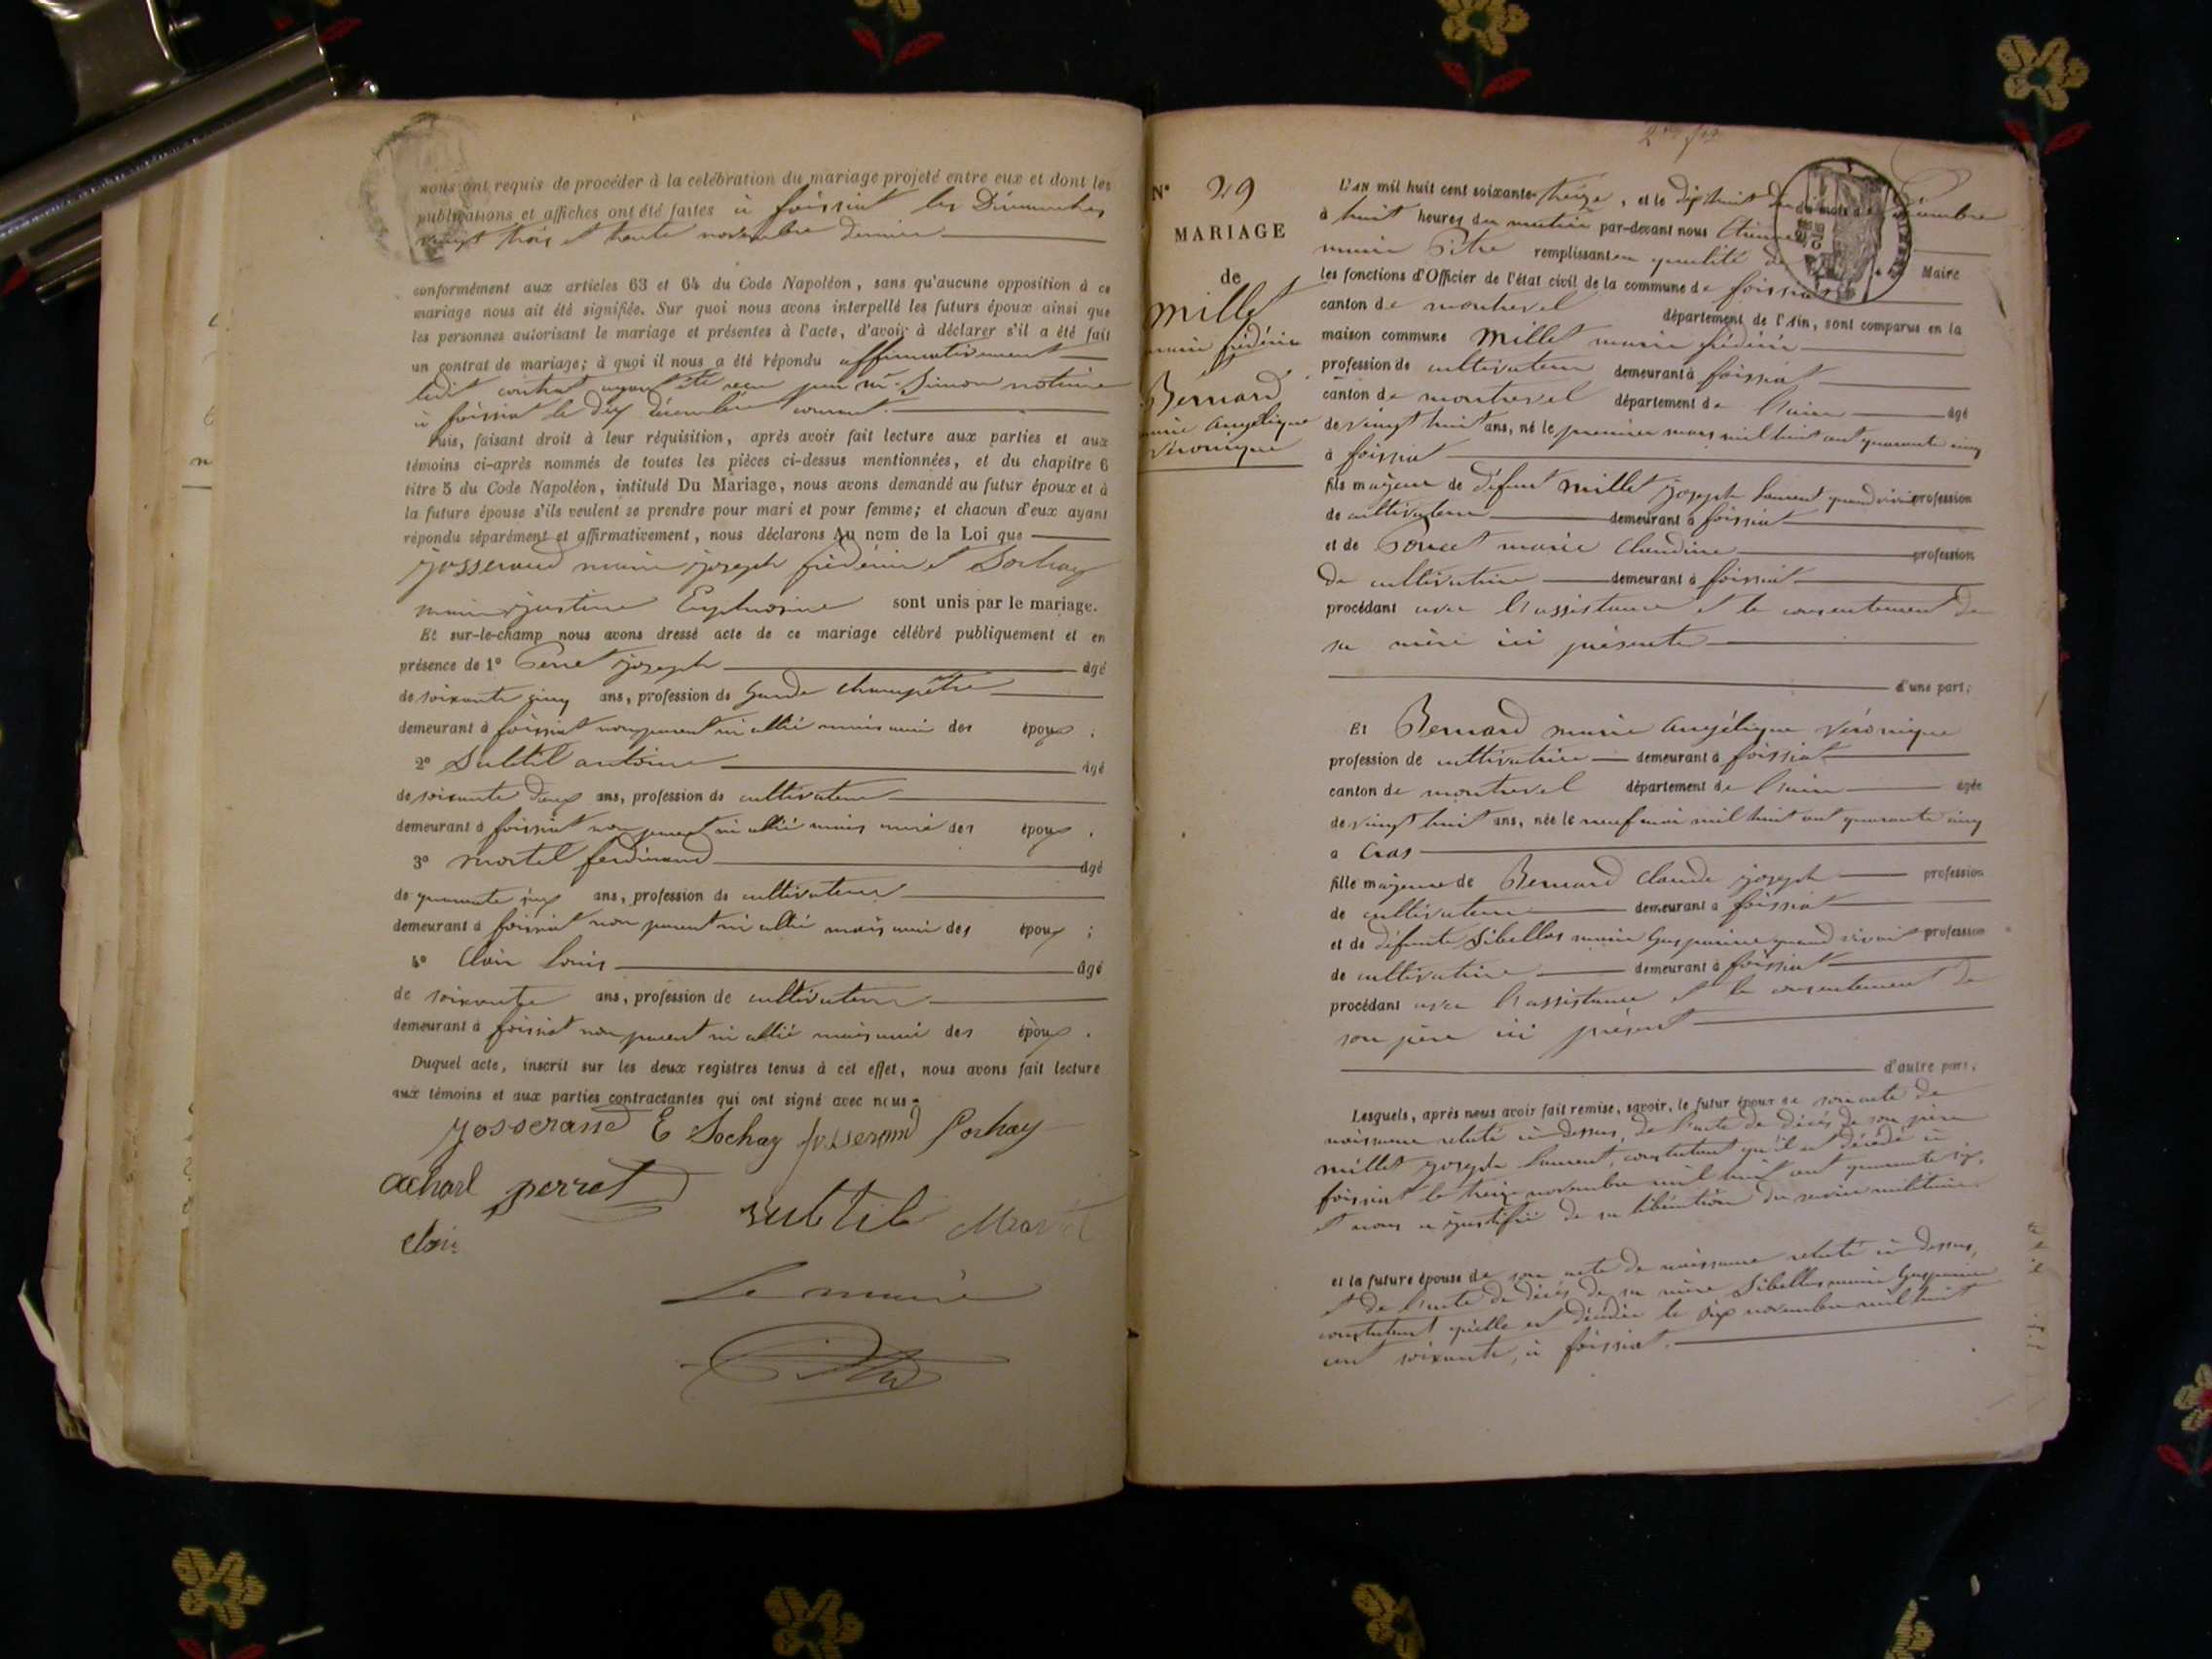 nous ont requis de procéder à la célébration du mariage projeté entre eux et dont les
publications et affiches ont été faites à foissiat les Dimanches
vingt trois et trente novembre dernier
conformément aux articles 63 et 64 du Code Napoléon, sans qu'aucune opposition à ce
mariage nous ait été signifiée. Sur quoi nous avons interpellé les futurs époux ainsi que
les personnes autorisant le mariage et présentes à l'acte, d'avoir à déclarer s'il a été fait
un contrat de mariage; à quoi il nous a été répondu affirmativement
ledit contrat ayant été reçu par me Simon notaire
à foissiat le dix décembre courant.
Puis, faisant droit à leur réquisition, après avoir fait lecture aux parties et aux
témoins ci-après nommés de toutes les pièces ci-dessus mentionnées, et du chapitre 6
titre 5 du Code Napoléon, intitulé Du Mariage, nous avons demandé au futur époux et à
la future épouse s'ils veulent se prendre pour mari et pour femme; et chacun d'eux ayant
répondu séparément et affirmativement, nous déclarons Au nom de la Loi que
josserand marie joseph frédéric et Sochay
marie justine Euphrosine sont unis par le mariage.
Et sur-le-champ nous avons dressé acte de ce mariage célébré publiquement et en
présence de 1° Perret joseph âgé
de soixante cinq ans, profession de garde champêtre
demeurant à foissiat non parent ni allié mais ami des époux ;
2° Subtil antoine âgé
de soixante deux ans, profession de cultivateur
demeurant à foissiat non parent ni allié mais ami des époux ,
3° Mortel ferdinand âgé
de quarante six ans, profession de cultivateur
demeurant à foissiat non parent ni allié mais ami des époux ;
4° Clair Louis âgé
de soixante ans, profession de cultivateur
demeurant à foissiat non parent ni allié mais ami des époux .
Duquel acte, inscrit sur les deux registres tenus à cet effet, nous avons fait lecture
aux témoins et aux parties contractantes qui ont signé avec nous.
Josserand E Sochay Josserand Sochay
achard perret subtil
Clair
Le maire
N° 29
MARIAGE
de
Millet
marie frédéric
et
Bernard
marie angélique
Véronique
L'AN mil huit cent soixante-treize, et le dix huit du mois de Décembre
à huit heures du matin par-devant nous Etienne
marie Pitre remplissant en qualité de Maire
les fonctions d'Officier de l'état civil de la commune de foissiat
canton de montrevel département de l'Ain, sont comparus en la
maison commune Millet marie frédéric
profession de cultivateur demeurant à foissiat
canton de montrevel département de l'ain âgé
de vingt huit ans, né le premier mars mil huit cent quarante cinq
à foissiat
fils majeur de défunt Millet joseph Laurent quand vivait profession
de cultivateur demeurant à foissiat
et de Poncet marie Claudine profession
de cultivatrice demeurant à foissiat
procédant avec l'assistance et le consentement de
sa mère ici présente
d'une part;
Et Bernard marie angélique Véronique
profession de cultivatrice demeurant à foissiat
canton de montrevel département de l'ain âgée
de vingt huit ans, née le neuf mai mil huit cent quarante cinq
à Cras
fille majeure de Bernard Claude joseph profession
de cultivateur demeurant à foissiat
et de défunte Sibellas marie Gasparine quand vivait profession
de cultivatrice demeurant à foissiat
procédant avec l'assistance et le consentement de
son père ici présent
d'autre part,
Lesquels, après nous avoir fait remise, savoir, le futur époux de son acte de
naissance relaté ci-dessus, de l'acte de décès de son père
millet joseph Laurent, constatant qu'il est décédé à
foissiat le treize novembre mil huit cent quarante six,
et nous a justifié de sa libération du service militaire.
et la future épouse de son acte de naissance relaté ci dessus,
et de l'acte de décès de sa mère Sibellas marie Gasparine
constatant qu'elle est décédée le six novembre mil huit
cent soixante, à foissiat.